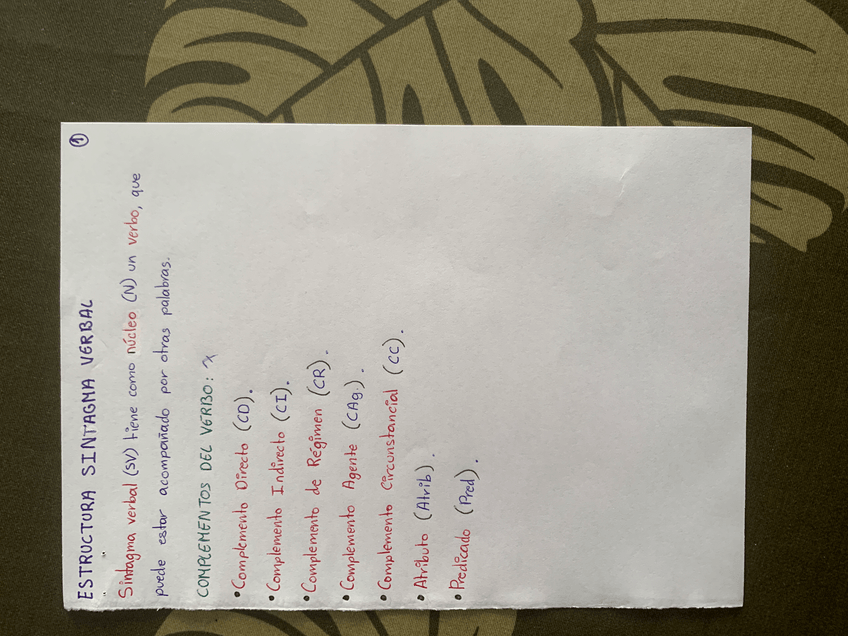 ESTRUCTURA SINTAGMA VERBAL
①
Sintagma verbal (SV) tiene como núcleo (N) un verbo, que
puede estar acompañado por otras palabras.
COMPLEMENTOS DEL VERBO:
• Complemento Directo (CD).
• Complemento Indirecto (CI).
• Complemento de Régimen (CR).
• Complemento Agente (CAg.).
• Complemento Circunstancial (CC).
• Atributo (Atrib).
• Predicado (Pred).